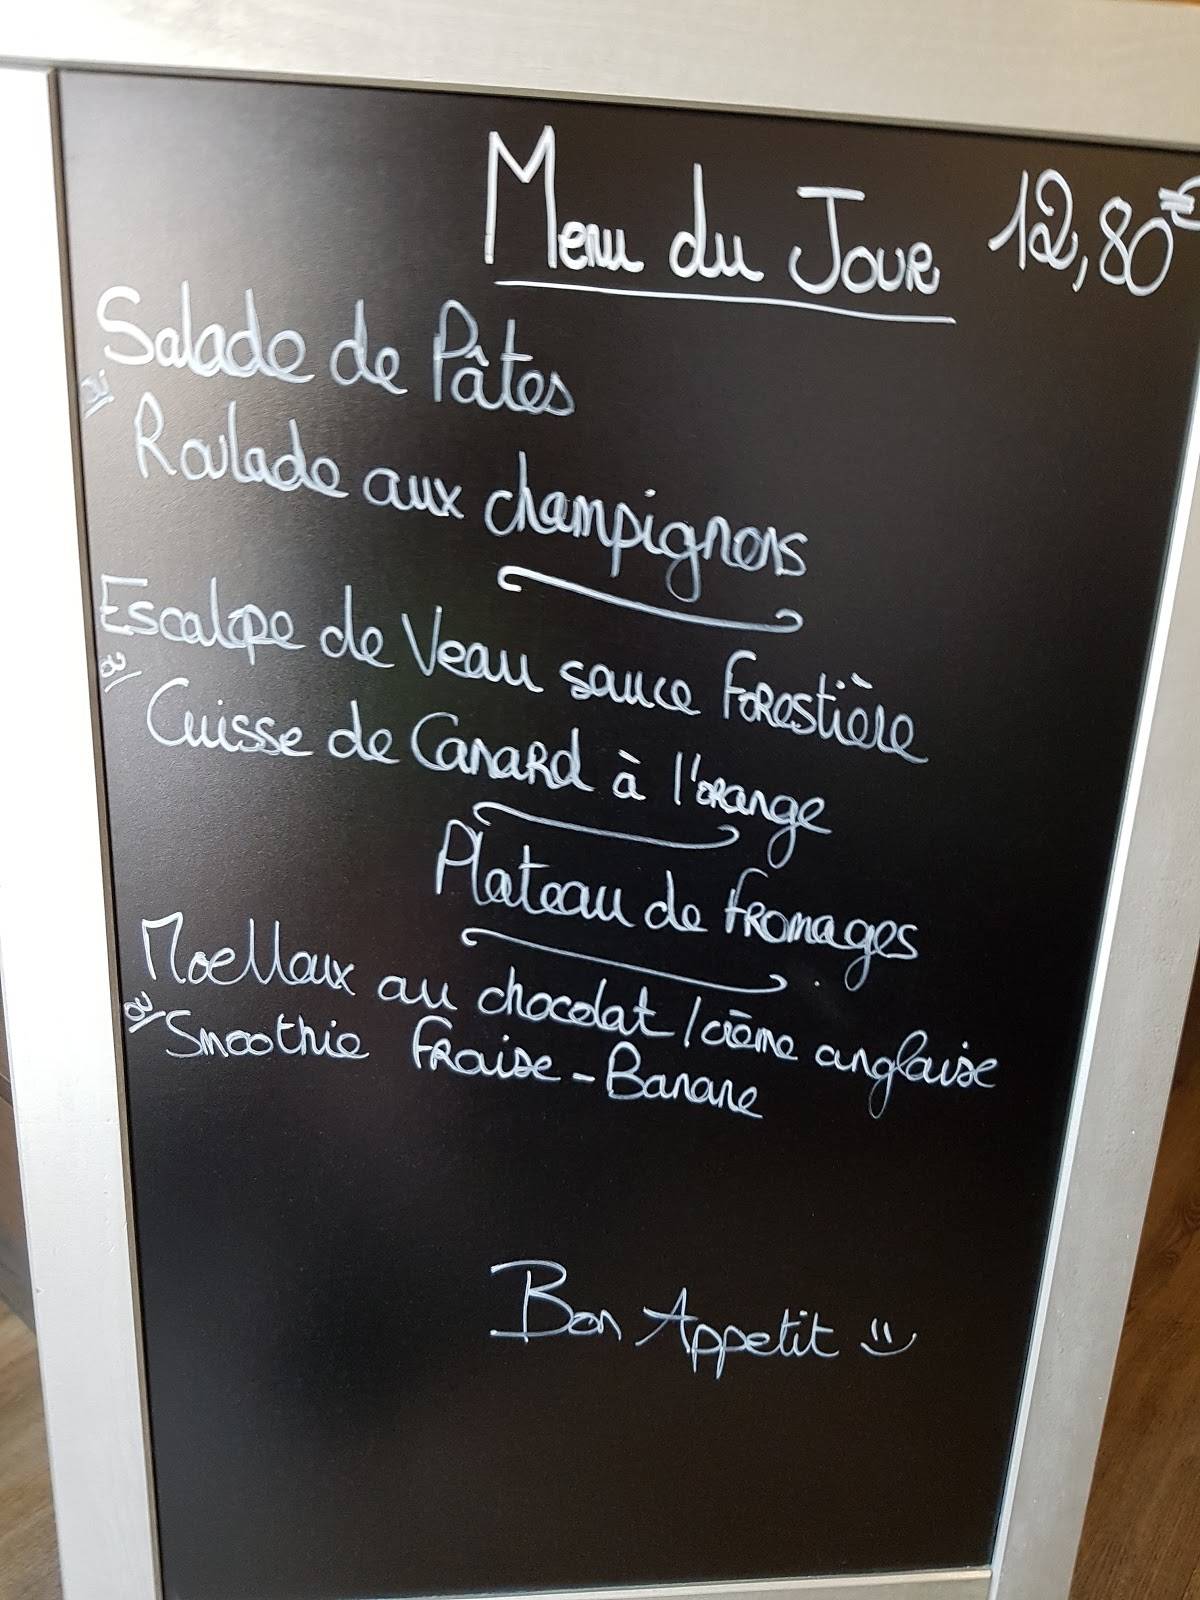 Menu du Jour 12,80€
Salade de Pâtes
ou
Roulade aux champignons
Escalope de Veau sauce Forestière
ou
Cuisse de Canard à l'orange
Plateau de fromages
Moelleux au chocolat / crème anglaise
ou
Smoothie Fraise - Banane
Bon Appetit